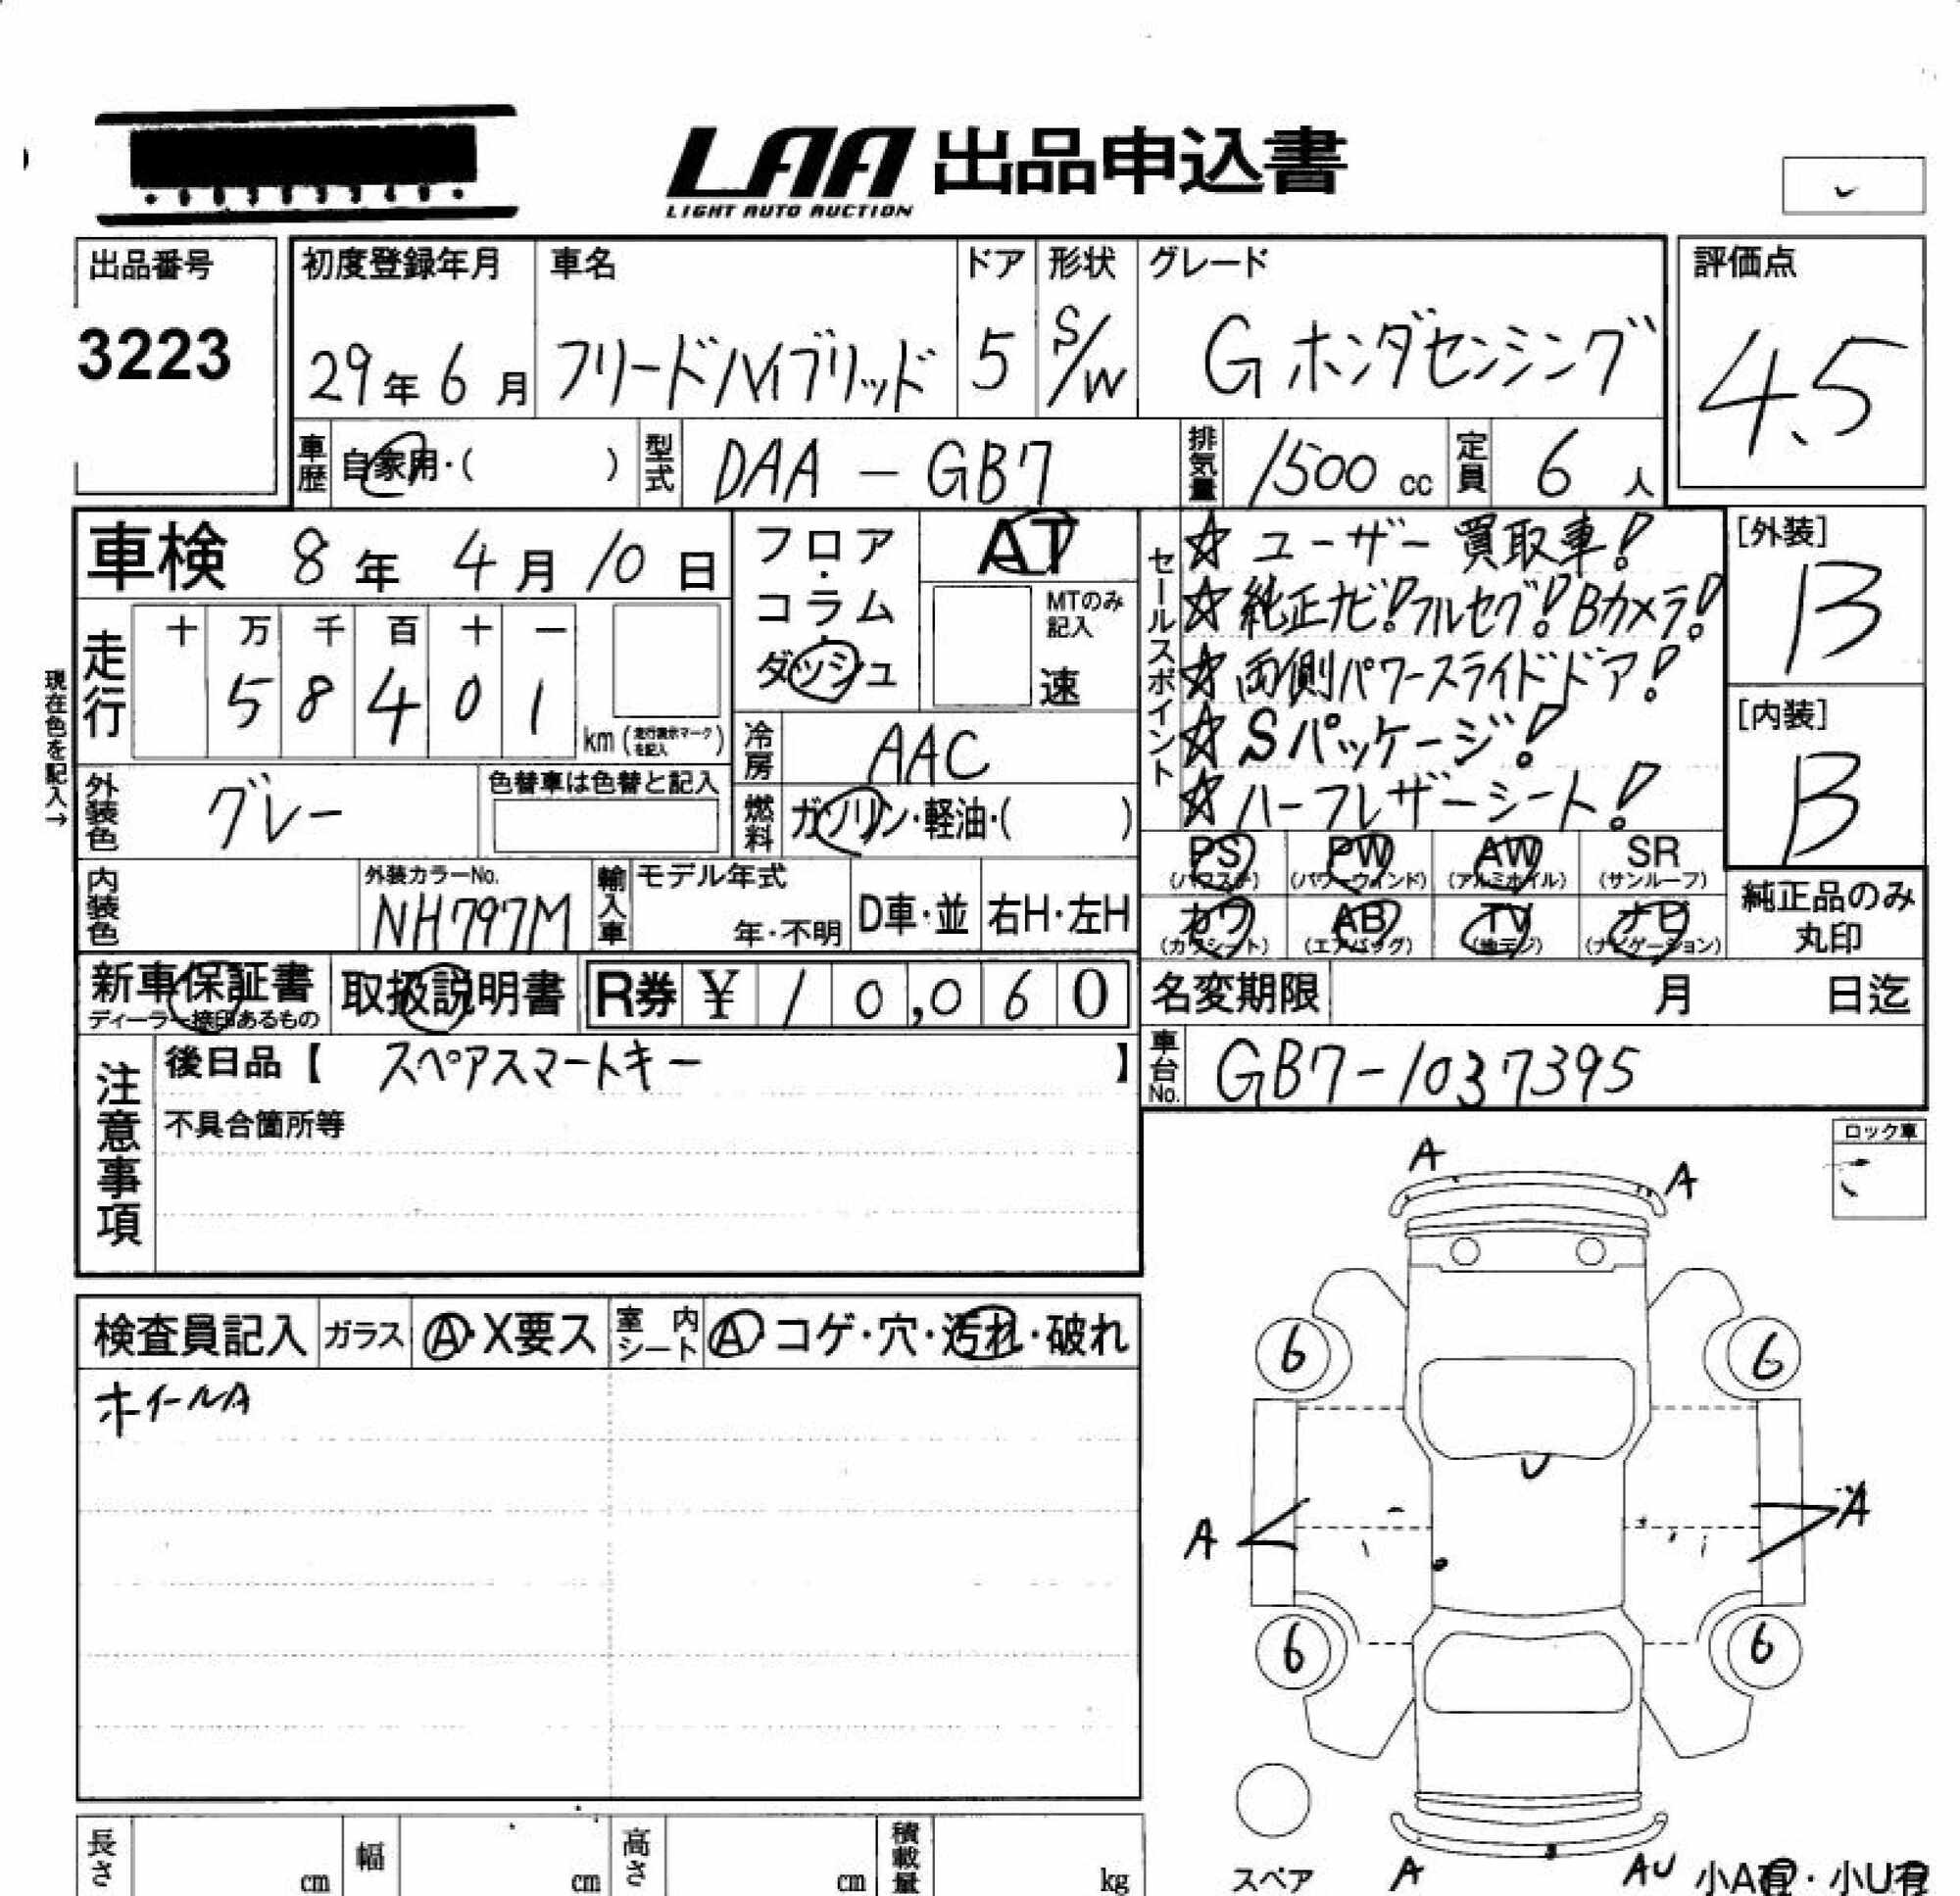 LAA 出品申込書
LIGHT AUTO AUCTION
出品番号
3223
初度登録年月
29年6月
車名
フリードハイブリッド
ドア
5
形状
S/W
グレード
G ホンダセンシング
評価点
4.5
車歴 自家用・( )
型式 DAA-GB7
排気量 1500 cc
定員 6 人
車検 8年 4月 10日
フロア・コラム・ダッシュ
AT
MTのみ記入
速
走行
十 万 千 百 十 一
5 8 4 0 1
km (走行表示マークを記入)
現在色を記入→
外装色 グレー
色替車は色替と記入
冷房 AAC
燃料 ガソリン・軽油・( )
セールスポイント
☆ ユーザー買取車!
☆ 純正ナビ!フルセグ!Bカメラ!
☆ 両側パワースライドドア!
☆ Sパッケージ!
☆ ハーフレザーシート!
[外装]
B
[内装]
B
内装色
外装カラーNo.
NH797M
輸入車
モデル年式
年・不明
D車・並
右H・左H
PS (パワステ)
PW (パワーウィンド)
AW (アルミホイル)
SR (サンルーフ)
カワ (カワシート)
AB (エアバッグ)
TV (地デジ)
ナビ (ナビゲーション)
純正品のみ
丸印
新車保証書
ディーラー捺印あるもの
取扱説明書
R券 ¥ 10,060
名変期限 月 日迄
車台No. GB7-1037395
注意事項
後日品【 スペアスマートキー 】
不具合箇所等
ロック車
検査員記入
ガラス A・X要ス
室内シート A・コゲ・穴・汚れ・破れ
ホイールA
A
A
6
6
U
A
A
6
6
スペア
A
AU
小A有・小U有
長さ cm
幅 cm
高さ cm
積載量 kg